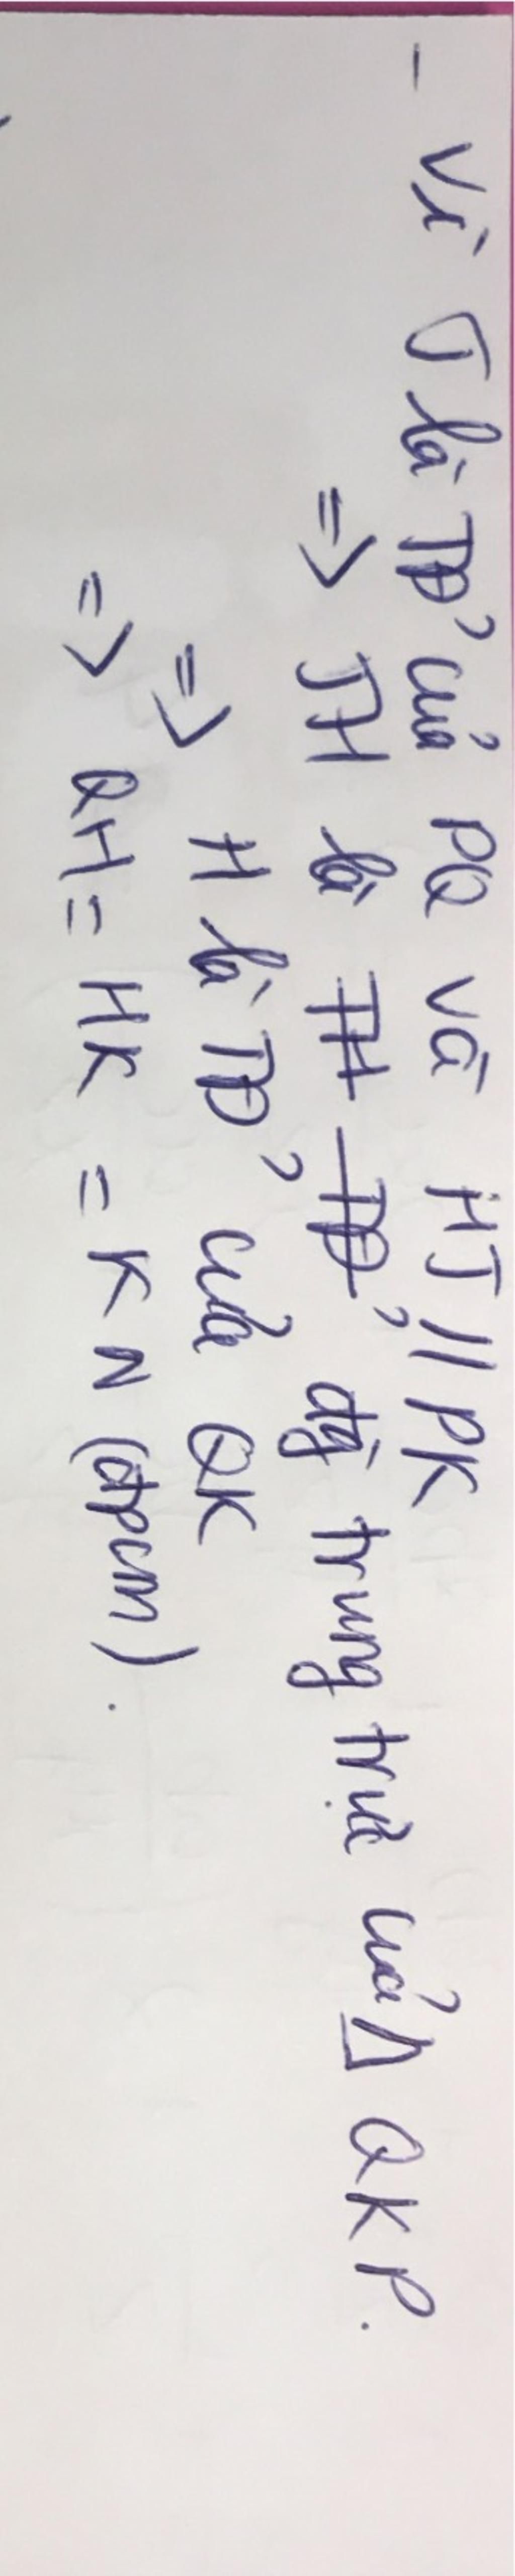 - Vì T là TĐ' của PQ và HT // PK
=> TH là TH TĐ' đg trung trực của Δ QKP.
=> H là TĐ' của QK
=> QH = HK = KN (đpcm).